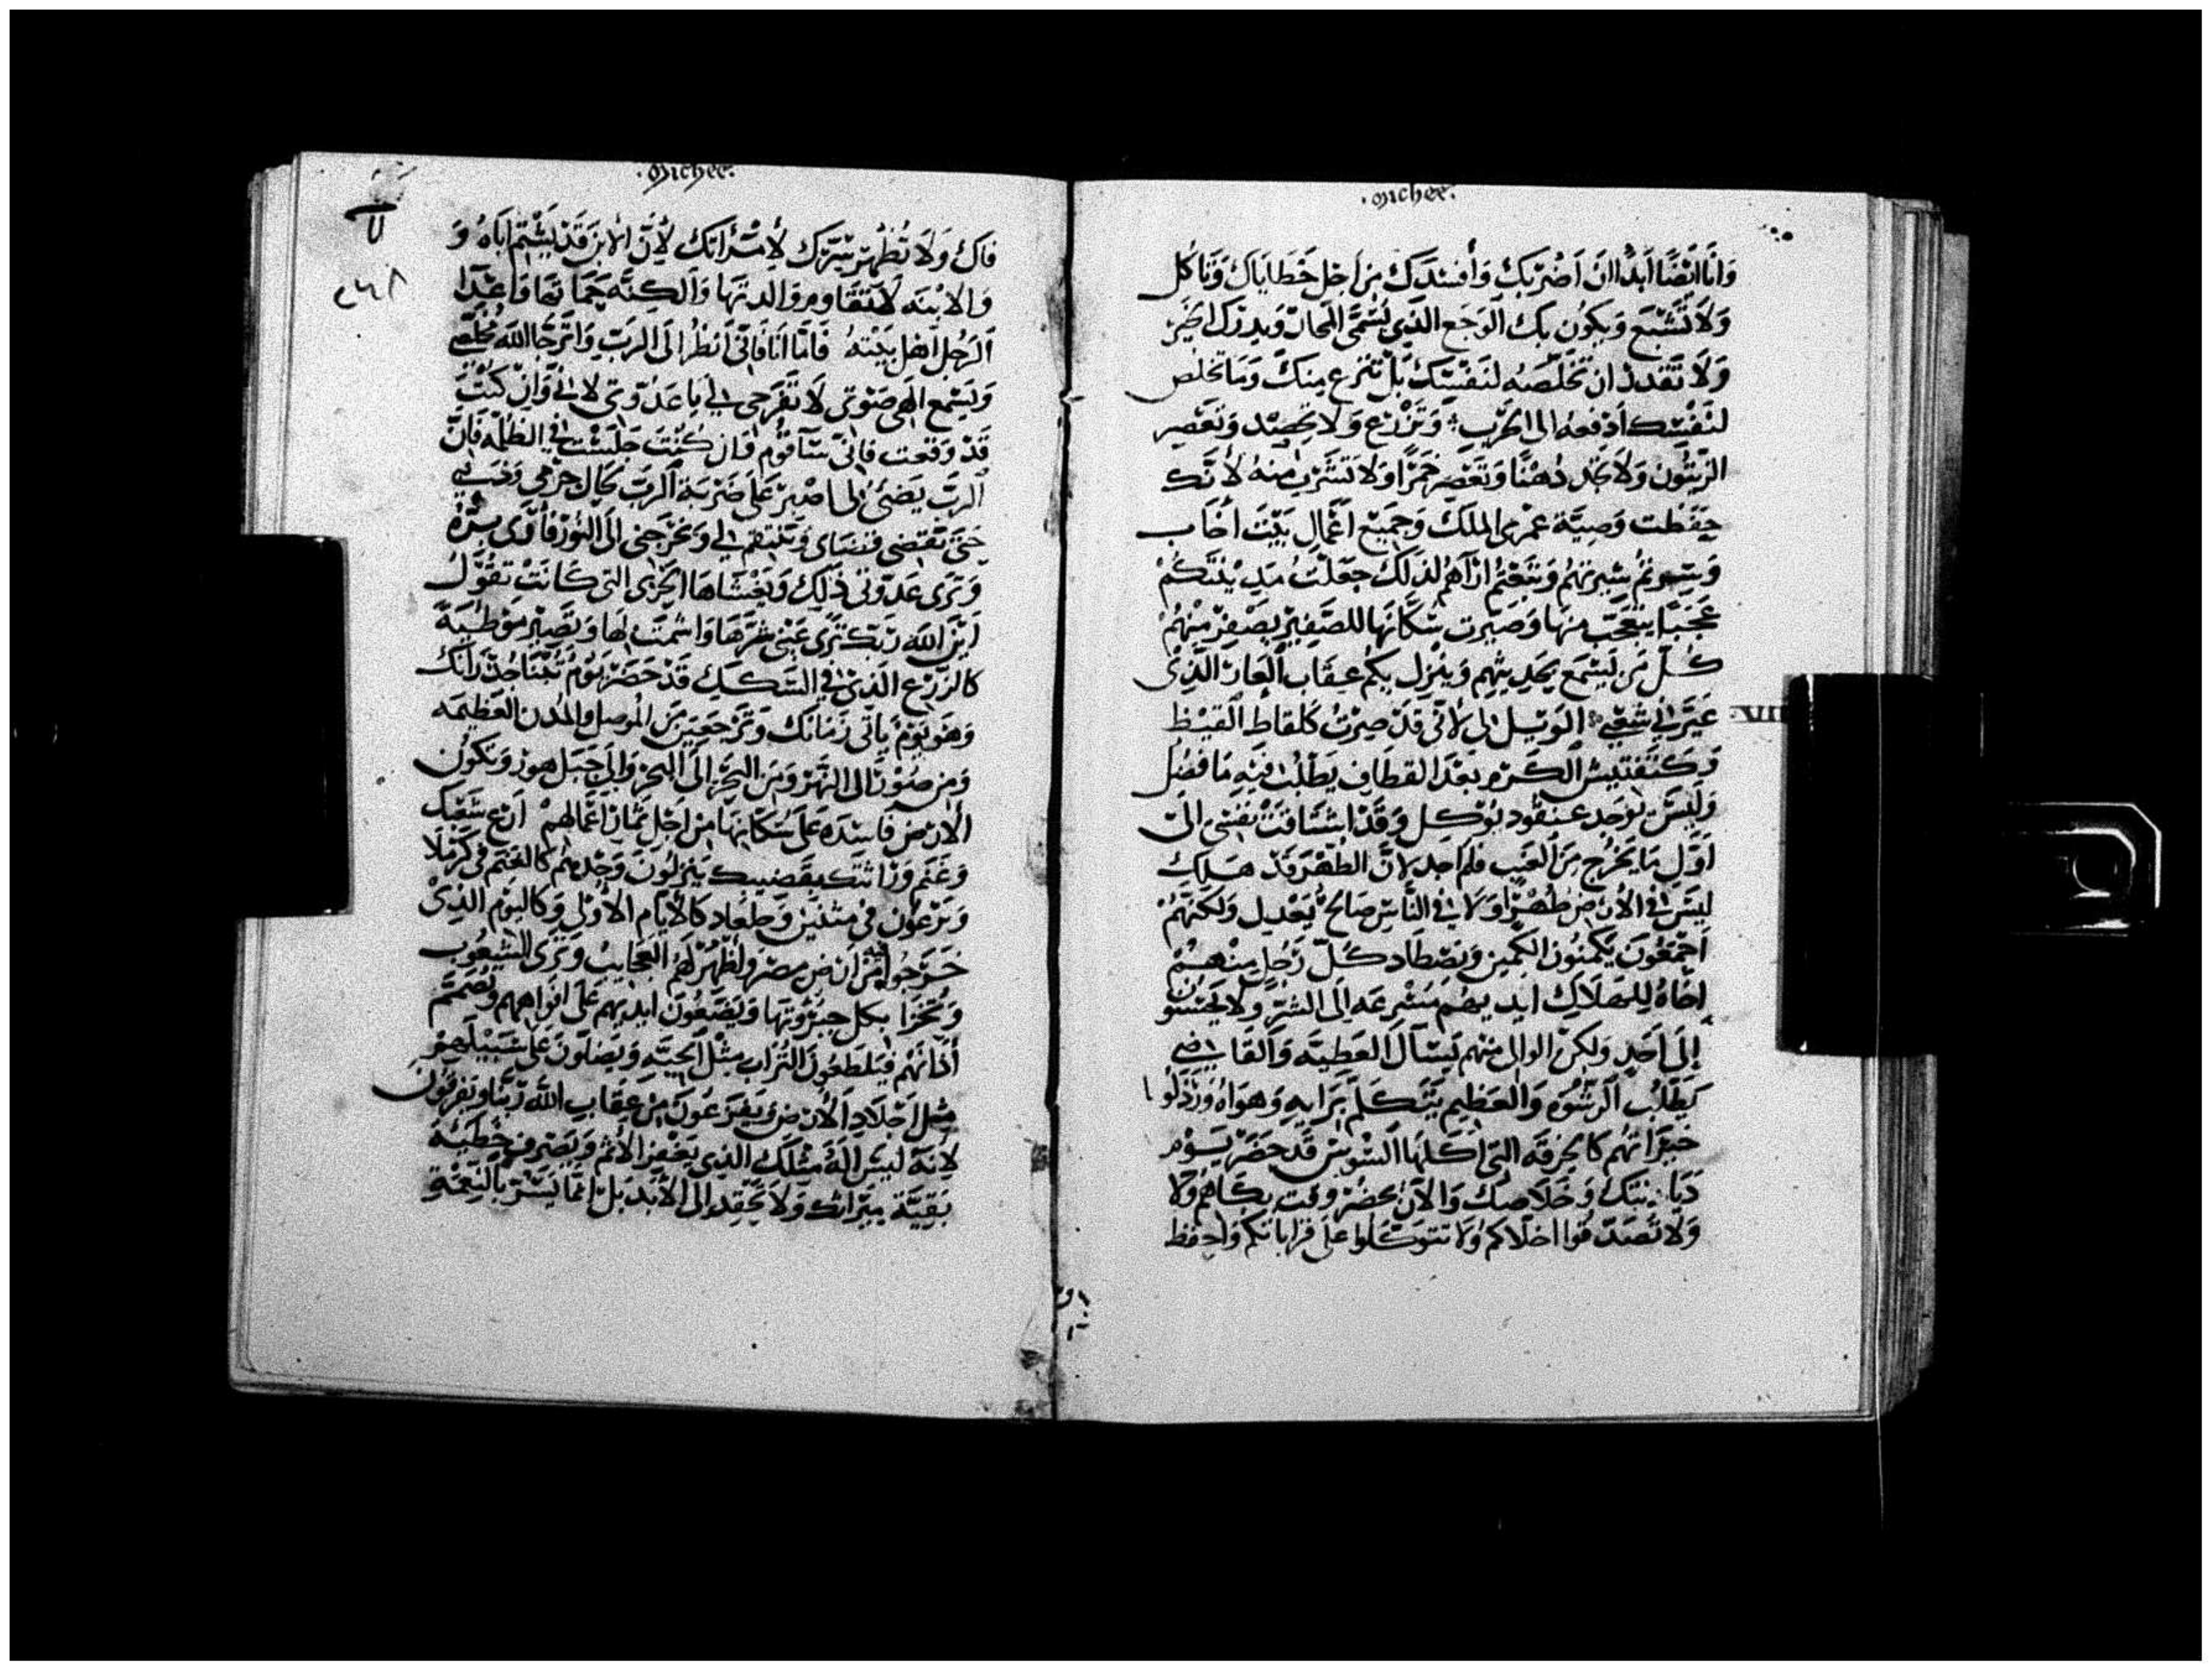 .Michee.
وَانَا ايْضًا ابدُا ان اَضْربَك وَافْسَدَك مِن اَجل خَطَايَاك وَتَاكل
وَلاَ تَشْبَع وَيكُون بك الوَجَع الذِي يُسَمَّى
وَلاَ تَقدر ان تخَلِّصَه لنَفْسَك بَل تنزع مِنك وَمَا تخلص
لنَفْسك ادْفعهُ الى الحَرب وَتَزْرَع وَلاَ تحصد وَتَعْصِر
الزيْتُون وَلاَ تجد دُهْنًا وَتَعْصر خَمرًا وَلاَ تَشْرَب منهُ لأنّك
حَفَظت وَصِيَّة عمري الملك وَجَميْع اعْمال بَيْت اخاب
وَسرتمُ سيرتهُم وَتَبَعْتُم ارْآهُم لذلك جعَلْتُ مَديْنتكمْ
عَجبًا يتعَجّب منهَا وَصَيرت سُكّانهَا للصَّفير يصْفر منْهُم
كُلّ مَن يَسْمَع بحديثهم وَينْزل بكم عقَاب العَار الذِي
عيَّرني شعْبي الوَيْل لي لاني قَد صرتُ كلقاط القيْظ
VII
وَكتَفتيش الكَرم بَعْد القطَاف يطْلبُ فيه مَا فَضُل
وَليْسَ يوجد عنقُود يُوكل وَقَد اشْتَاقَتْ نفْسي الى
اوّل مَا يخْرُج من العنَب فلم اجد لانَّ الطّهْر قَد هلك
ليْسَ في الأرْض طُهْرًا وَلا في النَّاس صَالحٌ يعْدل وَلكنّهُمْ
اجْمعُونَ يَكمنُون الكمين وَيصْطَاد كلّ رَجُل منْهمْ
اخَاهُ للهلاك ايديهم مُسْرعَه الى الشر وَلا يحسنُون
إلى اَحَدٍ وَلكن الوالي منهم يَسْأل العَطيّه وَالقَاضي
يطْلُب الرشْوَه وَالعَظيم يَتَكلّم برَايه وَهوَاهُ وَرذلوا
خيْرَاتهُم كالخرقَه التي اكلهَا السُّوس قَد حضَر يوم
دَيَا ينتك وَخَلاصك وَالآن يحضُر وقت بكاهم وَلا
وَلا تَصَدّقوا اخلاكم وَلا تتوَكّلوا على قرَاباتكم وَاحفظ
.Michee.
فاك وَلا تُظْهر سرَّك لأمْرَأتك لأنّ الابن قَد يَشْتم اباهُ وَ
وَالابْنه تقاوم وَالدتهَا وَالكنّه حمَاتهَا وَاعْدَا
الرَجل اهْل بيْته فَامّا انَا فَاني انظُر الى الرَب وَاترجّا الله مخلصي
وَيَسْمع الهي صَوْتي لا تفْرَحي لي يا عَدُوّتي لاني وَان كنْت
قَد وَقعت فاني سَاقُوم وَان كُنْت جلسْت في الظلمه فَانّ
الربّ يَضئ لي اصْبر عَلى ضَرْبَة الربّ بحال جرْمي وَذَنبي
حتّى تقْتضي وَتنتقم لي وَيخْرجَني الى النُّور فأرى برّهُ
وَترى عَدوّتي ذلك وَيغْشَاهَا الخزي التي كَانَت تقُول
ايْن الله ربّك تَرى عيْني شرّهَا وَاشمت لهَا وَتَصير مَوْطيَة
كالزّرْع الذي في السّكك قَد حَضَر يَوْمُ
وَهوَ يَوْمٌ يأتي زَمَانك وَتَرْجعين من المُوصل وَالمدن العَظيمه
وَمن صُوْر الى النّهْر وَمن البحْر الى البحر وَالى جَبل هور وَتكُون
الارْض فَاسدَه عَلى سُكّانهَا من اجل ثمار اعْمَالهمْ ارْع شَعْبك
وَغنَم ورَاثتك بقَضيبك ينزلُون كالغَنَم في كرْملا
وَيرْعَون في مثنين وَجلعاد كالأيّام الأولى وَكاليوْم الذِي
خرَجُوا من ارْض مصْر وَاظْهرْ لهم العجَايب وَترى الشعُوب
وَتخْزَا بكل جبرُوتهَا وَيَضَعُون ايديهم عَلى افْوَاههم وتُصَمّم
أذَانهُم فيَلطعُون التُرَاب مثْل الحيّه وَيضلونَ على سَبيلهم
مثل اجلاد الأرْض وَيفزعُونَ من عقَاب الله ربّنا وَيفرقُون
لأنَّهُ ليْسَ الهٌ مثْلك الذي يغْفر الأثم وَيصْرف خَطيْئة
بَقيّة ميرَاثك وَلاَ يحقد الى الأبَد بَل انمَا يُسَر بالنّعْمَةِ
٢٤٨